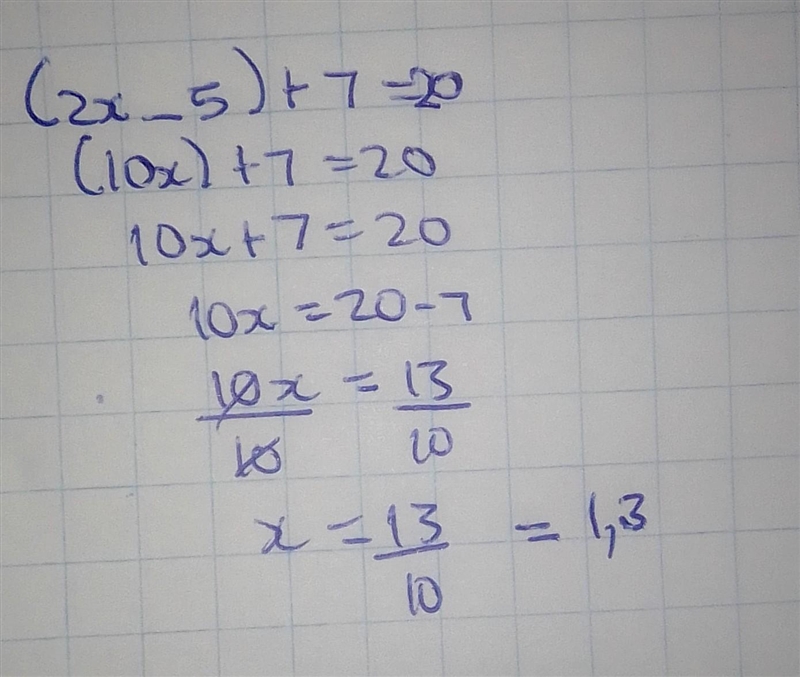 (2x - 5) + 7 = 20
(10x) + 7 = 20
10x + 7 = 20
10x = 20 - 7
10x/10 = 13/10
x = 13/10 = 1,3